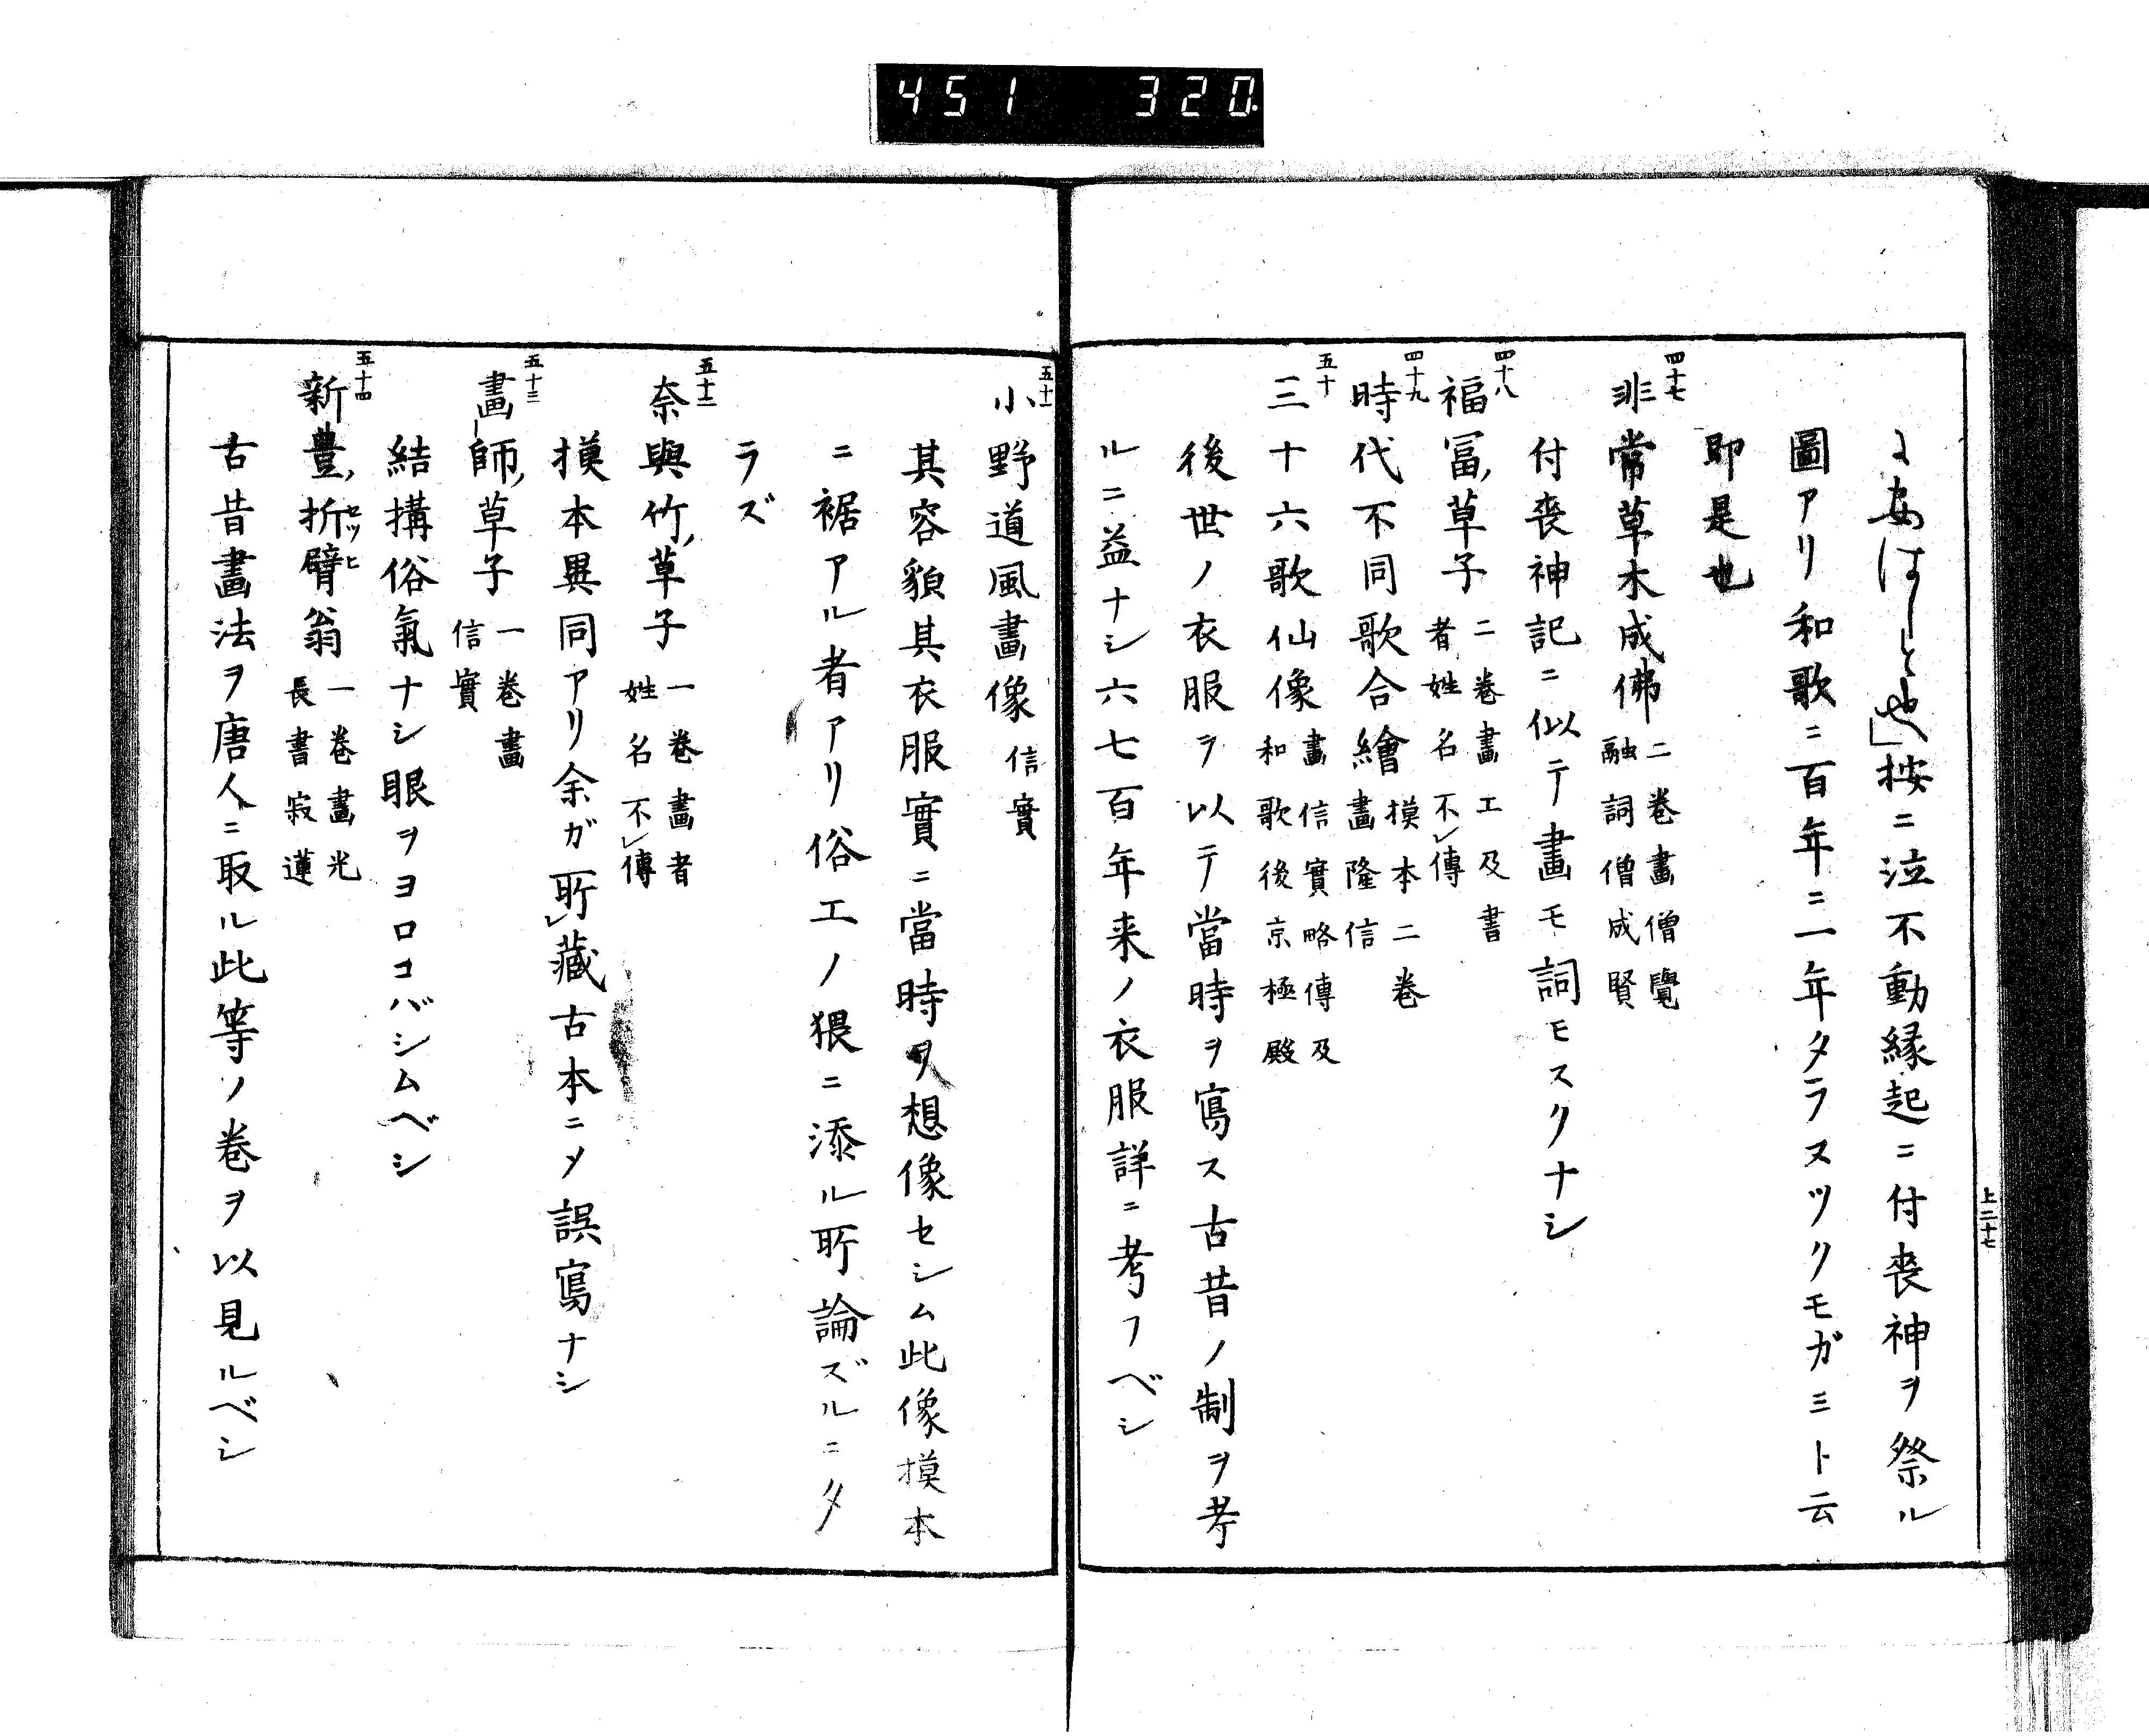 451 320
上二十七
に安はしと也」按ニ泣不動縁起ニ付喪神ヲ祭ル
圖アリ和歌ニ百年ニ一年タラヌツクモガミト云
即是也
四十七
非常草木成佛 二卷畫僧覺
融詞僧成賢
付喪神記ニ似テ畫モ詞モスクナシ
四十八
福冨草子 二卷畫工及書
者姓名不傳
四十九
時代不同歌合繪 摸本二卷
畫隆信
五十
三十六歌仙像 畫信實略傳及
和歌後京極殿
後世ノ衣服ヲ以テ當時ヲ寫ス古昔ノ制ヲ考
ルニ益ナシ六七百年来ノ衣服詳ニ考フベシ
五十一
小野道風畫像 信實
其容貌其衣服實ニ當時ヲ想像セシム此像摸本
ニ裾アル者アリ俗工ノ猥ニ添ル所論ズルニタ
ラズ
五十二
奈與竹草子 一卷畫者
姓名不傳
摸本異同アリ余ガ所藏古本ニメ誤寫ナシ
五十三
畫師草子 一卷畫
信實
結搆俗氣ナシ眼ヲヨロコバシムベシ
五十四
新豊折臂翁 一卷畫光
長書寂蓮
セツヒ
古昔畫法ヲ唐人ニ取ル此等ノ卷ヲ以見ルベシ